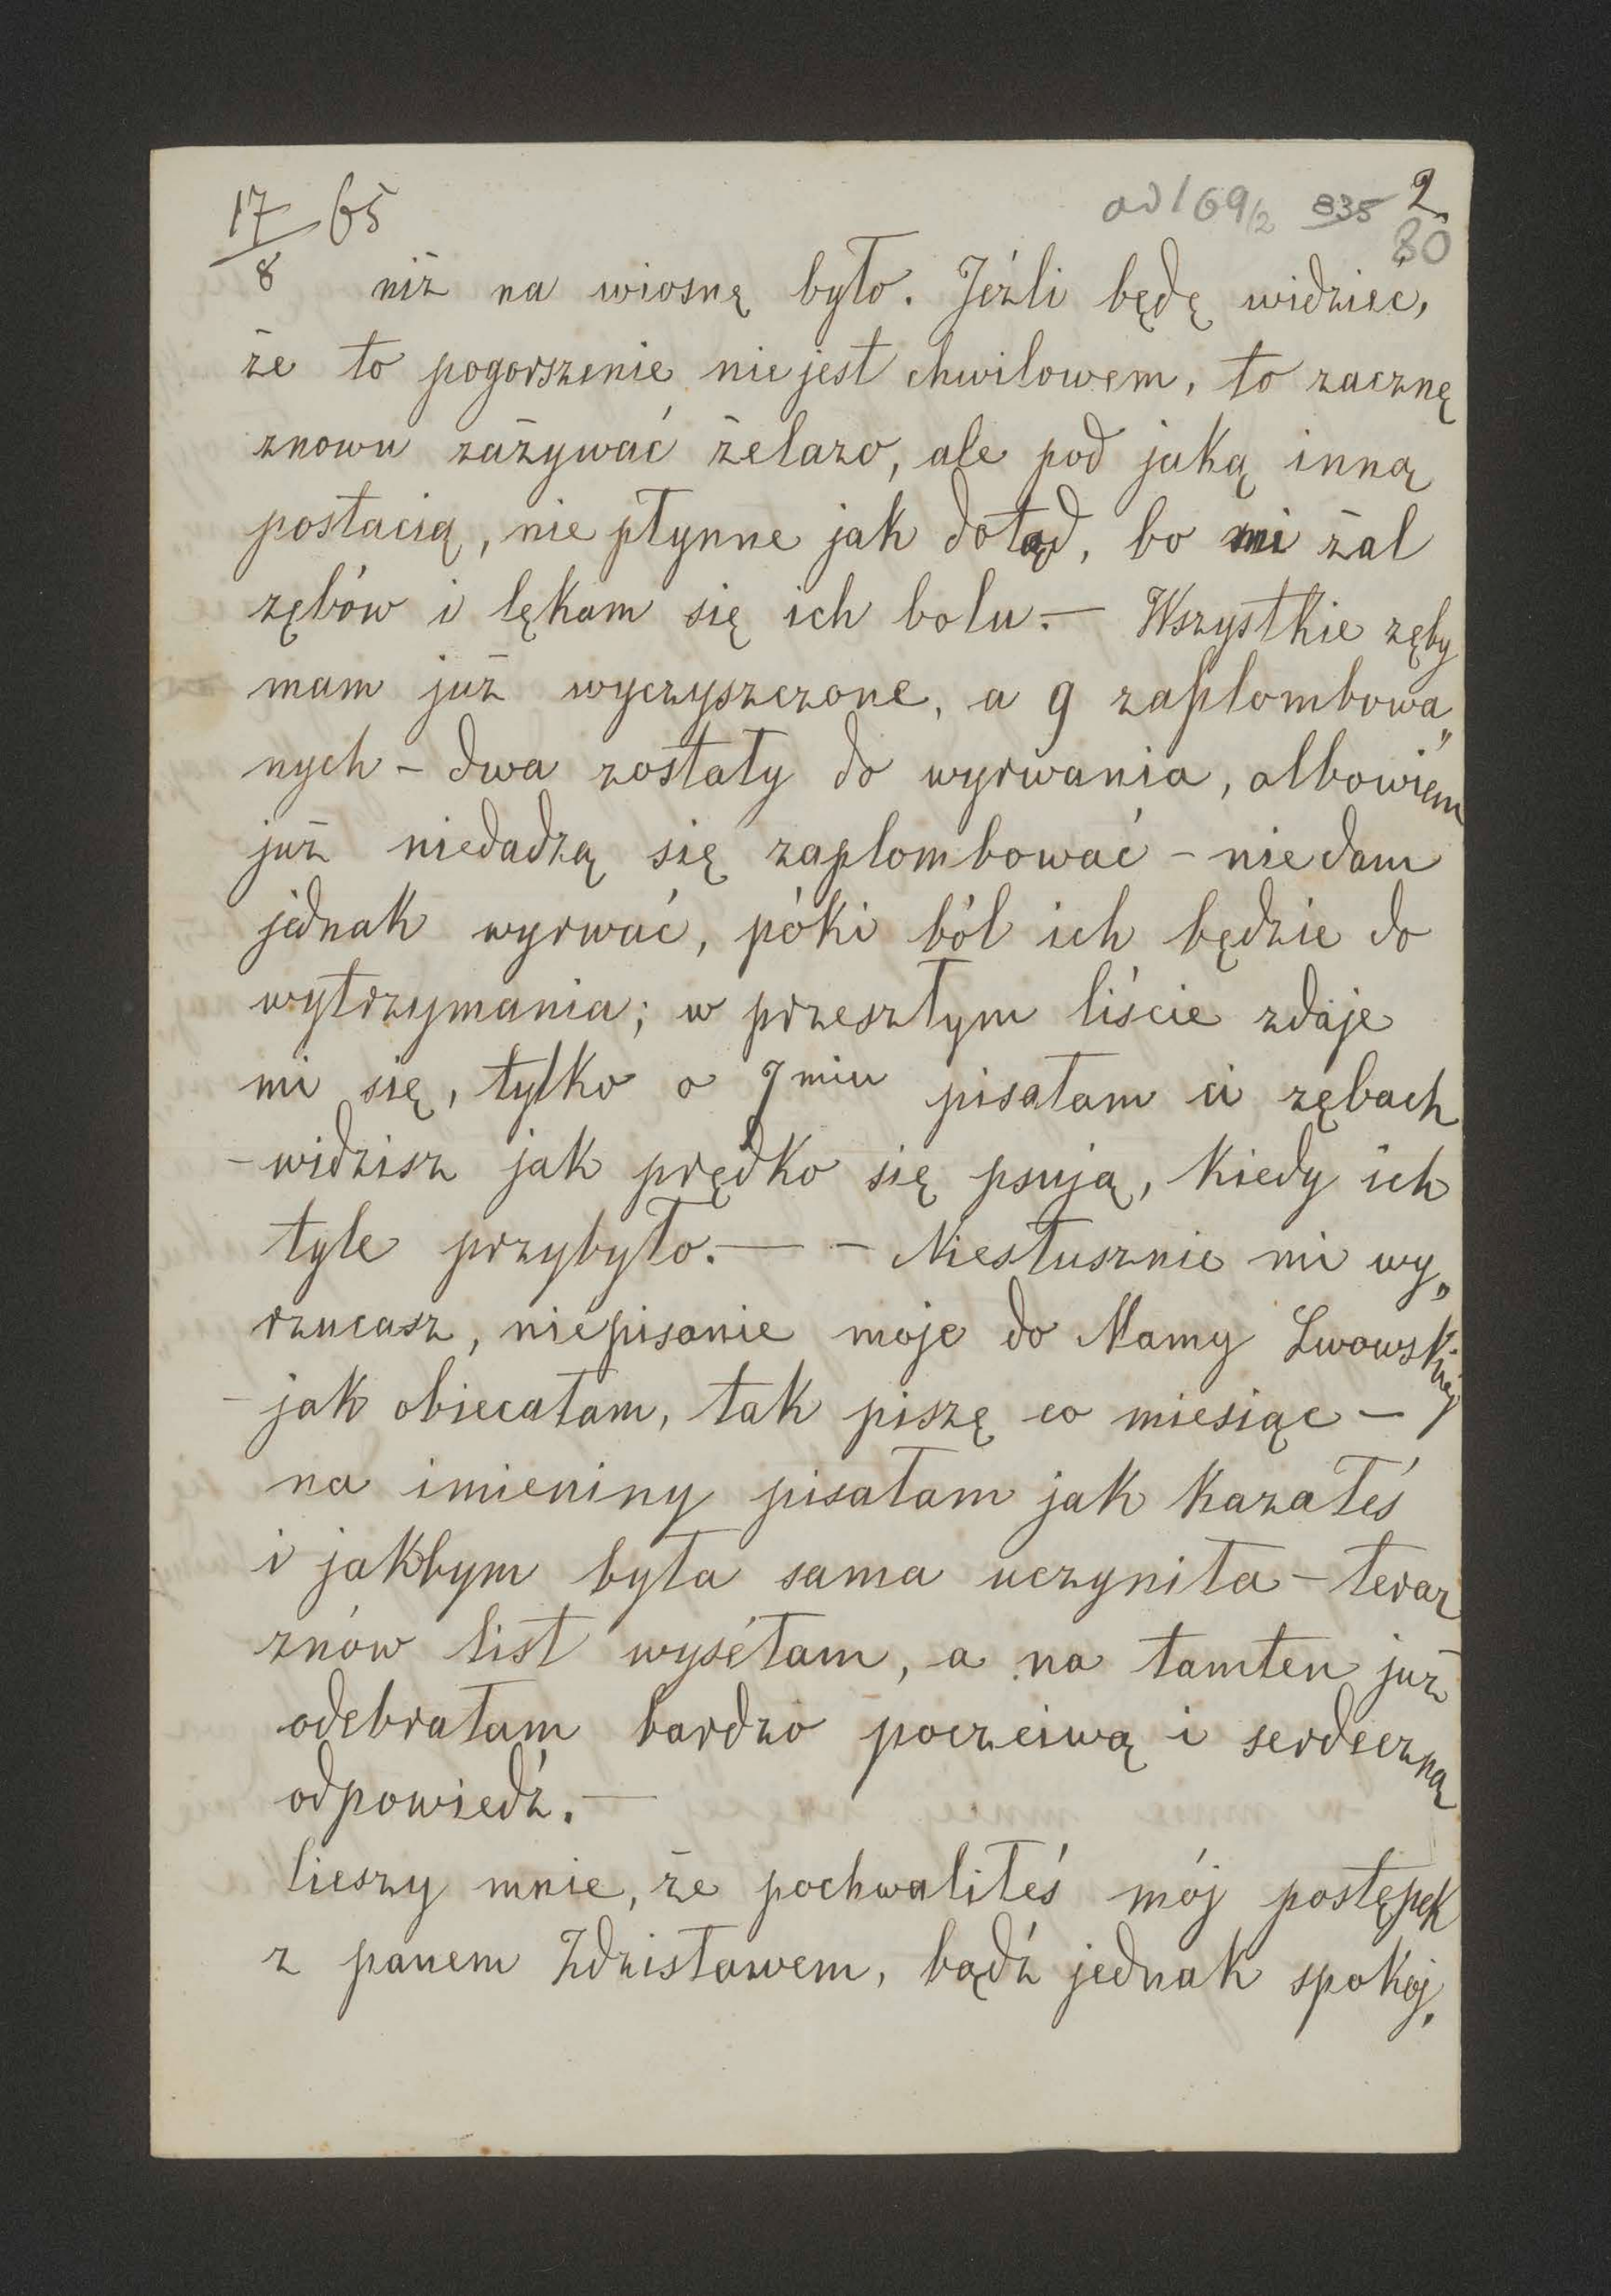 17/8 65
ad 169/2 835 2
80
niż na wiosnę było. Jeźli będę widzieć,
że to pogorszenie nie jest chwilowem, to zacznę
znowu zażywać żelazo, ale pod jaką inną
postacią, nie płynne jak dotąd, bo mi żal
zębów i lękam się ich bolu. — Wszystkie zęby
mam już wyczyszczone, a 9 zaplombowa„
nych – dwa zostały do wyrwania, albowiem
już niedadzą się zaplombować – nie dam
jednak wyrwać, póki ból ich będzie do
wytrzymania; w przeszłym liście zdaje
mi się, tylko o 7miu pisałam ci zębach
– widzisz jak prędko się psują, kiedy ich
tyle przybyło. — – Niesłusznie mi wy„
rzucasz, niepisanie moje do Mamy Lwowskiej
– jak obiecałam, tak piszę co miesiąc –
na imieniny pisałam jak kazałeś
i jakbym była sama uczyniła – teraz
znów list wyséłam, a na tamten już
odebrałam bardzo poczciwą i serdeczną
odpowiedź. —
Cieszy mnie, że pochwaliłeś mój postępek
z panem Zdzisławem, bądź jednak spokoj„